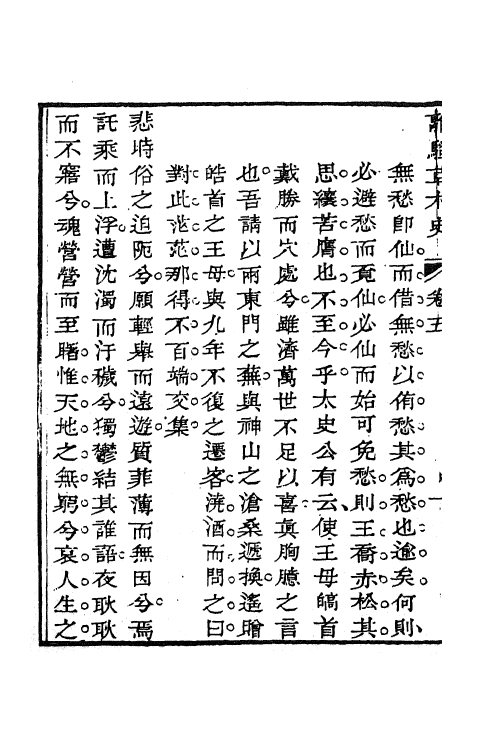 離騷草木史 卷五
無愁卽仙而借無愁以侑愁其爲愁也逾矣何則
必避愁而覓仙必仙而始可免愁則王喬赤松其
思纕苦膺也不至今乎太史公有云使王母皜首
戴勝而穴處兮雖濟萬世不足以喜眞胸臆之言
也吾請以兩東門之蕪與神山之滄桑遞換遙贈
皓首之王母與九年不復之遷客澆酒而問之曰
對此茫茫那得不百端交集
悲時俗之迫阨兮願輕舉而遠遊質菲薄而無因兮焉
託乘而上浮遭沈濁而汙穢兮獨鬱結其誰語夜耿耿
而不寐兮魂營營而至曙惟天地之無窮兮哀人生之